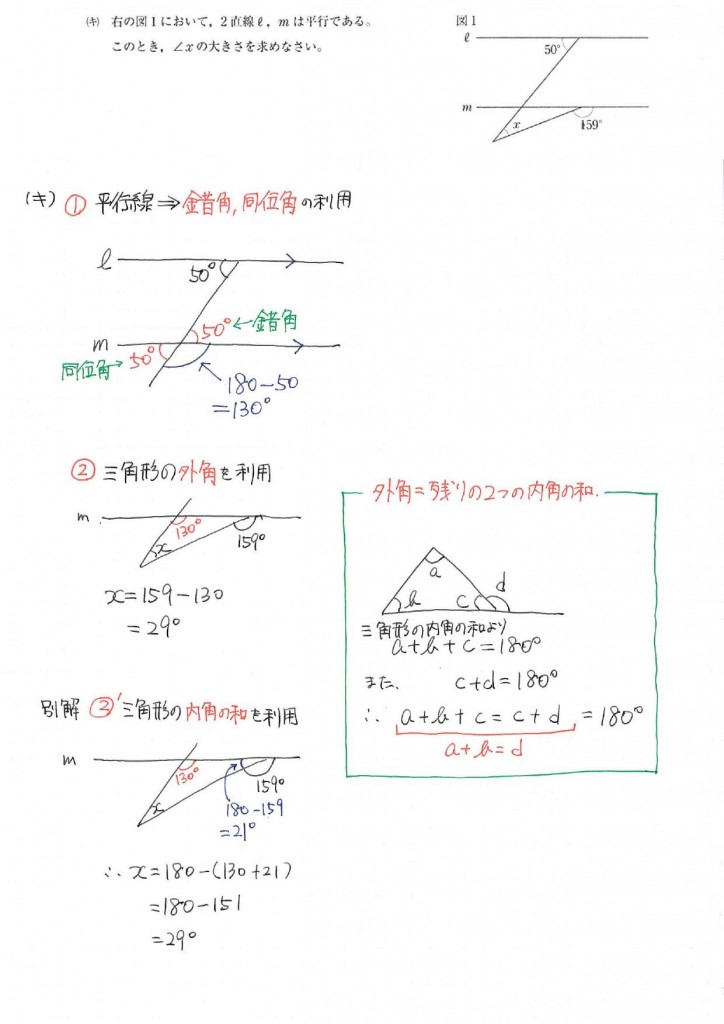 (キ) 右の図1において，2直線ℓ，mは平行である。
このとき，∠xの大きさを求めなさい。
図1
ℓ
50°
m
x
159°
(キ) ① 平行線⇒錯角,同位角の利用
ℓ
50°
50°←錯角
m
50°
同位角→
180-50
=130°
② 三角形の外角を利用
m
130°
x
159°
x=159-130
=29°
外角=残りの2つの内角の和.
a
b
c
d
三角形の内角の和より
a+b+c=180°
また、 c+d=180°
∴ a+b+c=c+d=180°
a+b=d
別解 ②′三角形の内角の和を利用
m
130°
x
159°
180-159
=21°
∴ x=180-(130+21)
=180-151
=29°